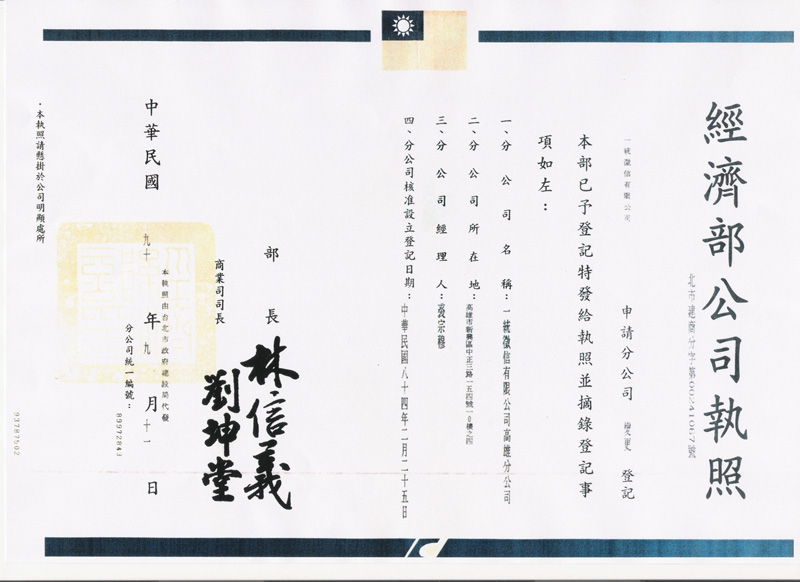 經濟部公司執照
北市建商分字第00241067號
一統徵信有限公司
申請分公司 變更 登記
本部已予登記特發給執照並摘錄登記事
項如左：
一、分公司名稱：一統徵信有限公司高雄分公司
二、分公司所在地：高雄市新興區中正三路一五四號一0樓之四
三、分公司經理人：宗雞
四、分公司核准設立登記日期：中華民國八十四年二月二十五日
部長 林信義
商業司司長 劉坤堂
本執照由台北市政府建設局代發
中華民國 九十 年 九 月 十一 日
分公司統一編號：89972843
．本執照請懸掛於公司明顯處所
93787502